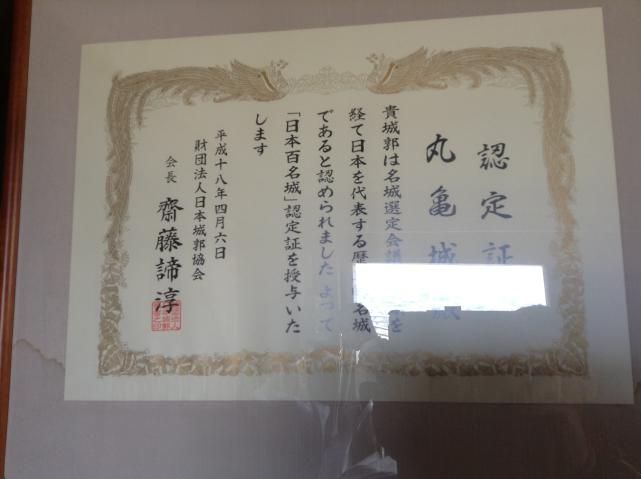 認定証
丸亀城
貴城郭は名城選定会議を
経て日本を代表する歴 名城
であると認められました よって
「日本百名城」認定証を授与いた
します
平成十八年四月六日
財団法人日本城郭協会
会長 齋藤諦淳